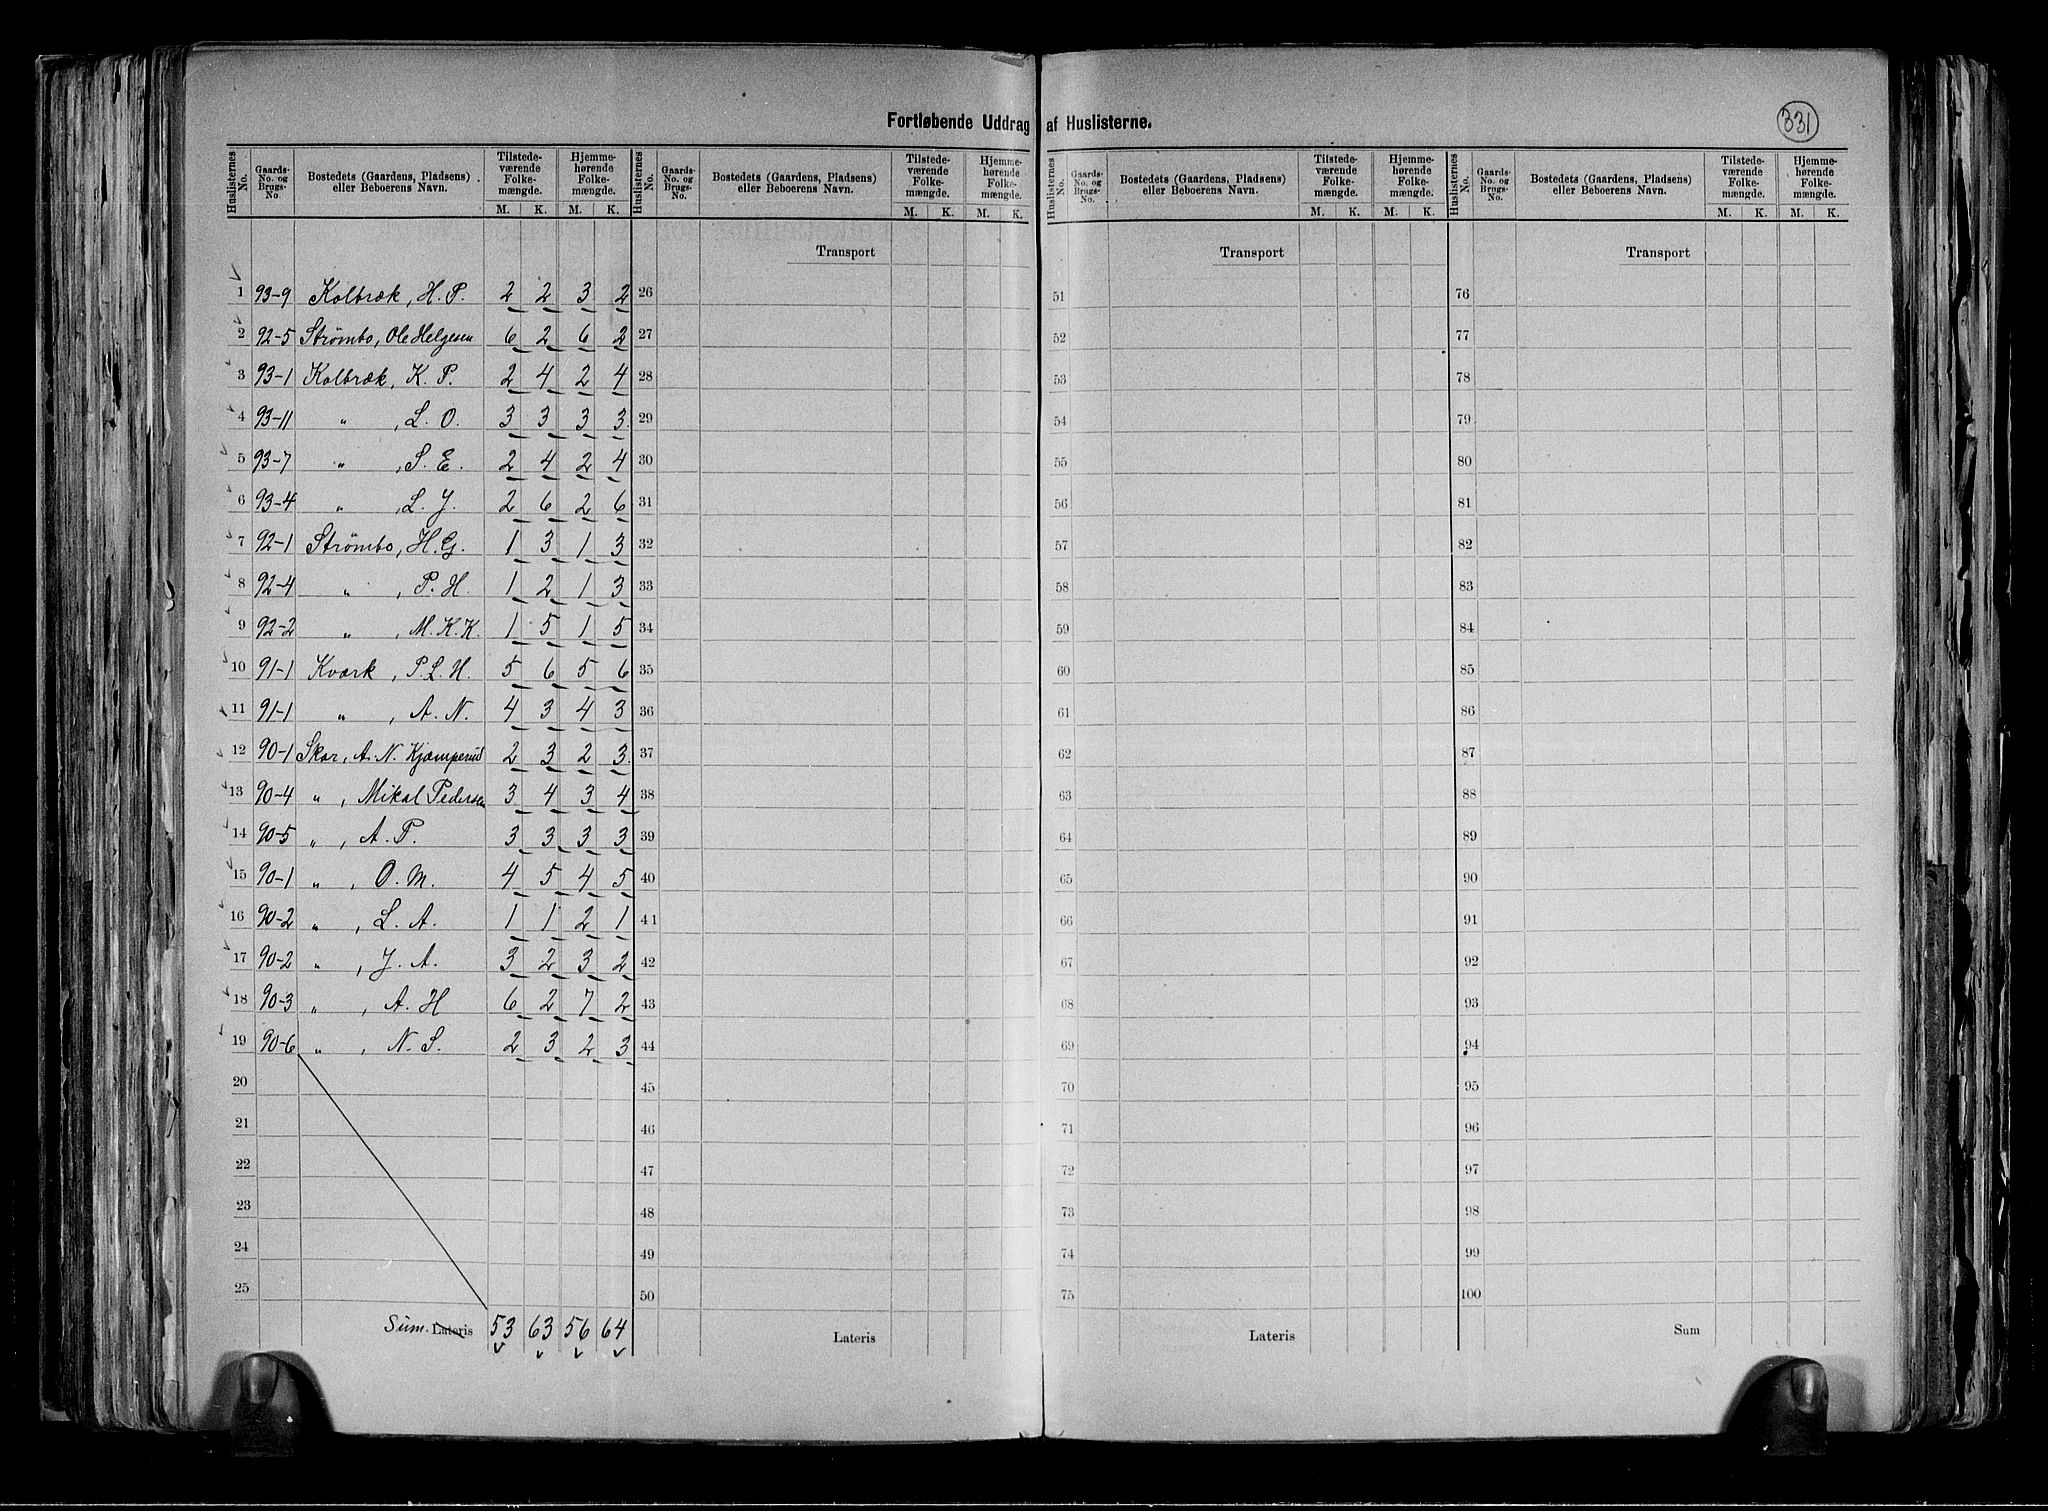 Fortløbende Uddrag af Huslisterne.
331
Huslisternes No. | Gaards-No. og Brugs-No. | Bostedets (Gaardens, Pladsens) eller Beboerens Navn. | Tilstedeværende Folkemængde. M. K. | Hjemmehørende Folkemængde. M. K. | Huslisternes No. | Gaards-No. og Brugs-No. | Bostedets (Gaardens, Pladsens) eller Beboerens Navn. | Tilstedeværende Folkemængde. M. K. | Hjemmehørende Folkemængde. M. K. | Huslisternes No. | Gaards-No. og Brugs-No. | Bostedets (Gaardens, Pladsens) eller Beboerens Navn. | Tilstedeværende Folkemængde. M. K. | Hjemmehørende Folkemængde. M. K. | Huslisternes No. | Gaards-No. og Brugs-No. | Bostedets (Gaardens, Pladsens) eller Beboerens Navn. | Tilstedeværende Folkemængde. M. K. | Hjemmehørende Folkemængde. M. K.
Transport Transport Transport
1 93-9 Kolbræk, H. P. 2 2 3 2 26 51 76
2 92-5 Strømbo, Ole Helgesen 6 2 6 2 27 52 77
3 93-1 Kolbræk, K. P. 2 4 2 4 28 53 78
4 93-11 " , L. O. 3 3 3 3 29 54 79
5 93-7 " , S. E. 2 4 2 4 30 55 80
6 93-4 " , L. J. 2 6 2 6 31 56 81
7 92-1 Strømbo, H. G. 1 3 1 3 32 57 82
8 92-4 " , P. H. 1 2 1 3 33 58 83
9 92-2 " , M. K. K. 1 5 1 5 34 59 84
10 91-1 Kværk, P. L. H. 5 6 5 6 35 60 85
11 91-1 " , A. N. 4 3 4 3 36 61 86
12 90-1 Skar, A. N. Kjæmperud 2 3 2 3 37 62 87
13 90-4 " , Mikal Pedersen 3 4 3 4 38 63 88
14 90-5 " , A. P. 3 3 3 3 39 64 89
15 90-1 " , O. M. 4 5 4 5 40 65 90
16 90-2 " , L. A. 1 1 2 1 41 66 91
17 90-2 " , J. A. 3 2 3 2 42 67 92
18 90-3 " , A. H 6 2 7 2 43 68 93
19 90-6 " , N. S. 2 3 2 3 44 69 94
20 45 70 95
21 46 71 96
22 47 72 97
23 48 73 98
24 49 74 99
25 50 75 100
Sum. Lateris 53 63 56 64 Lateris Lateris Sum